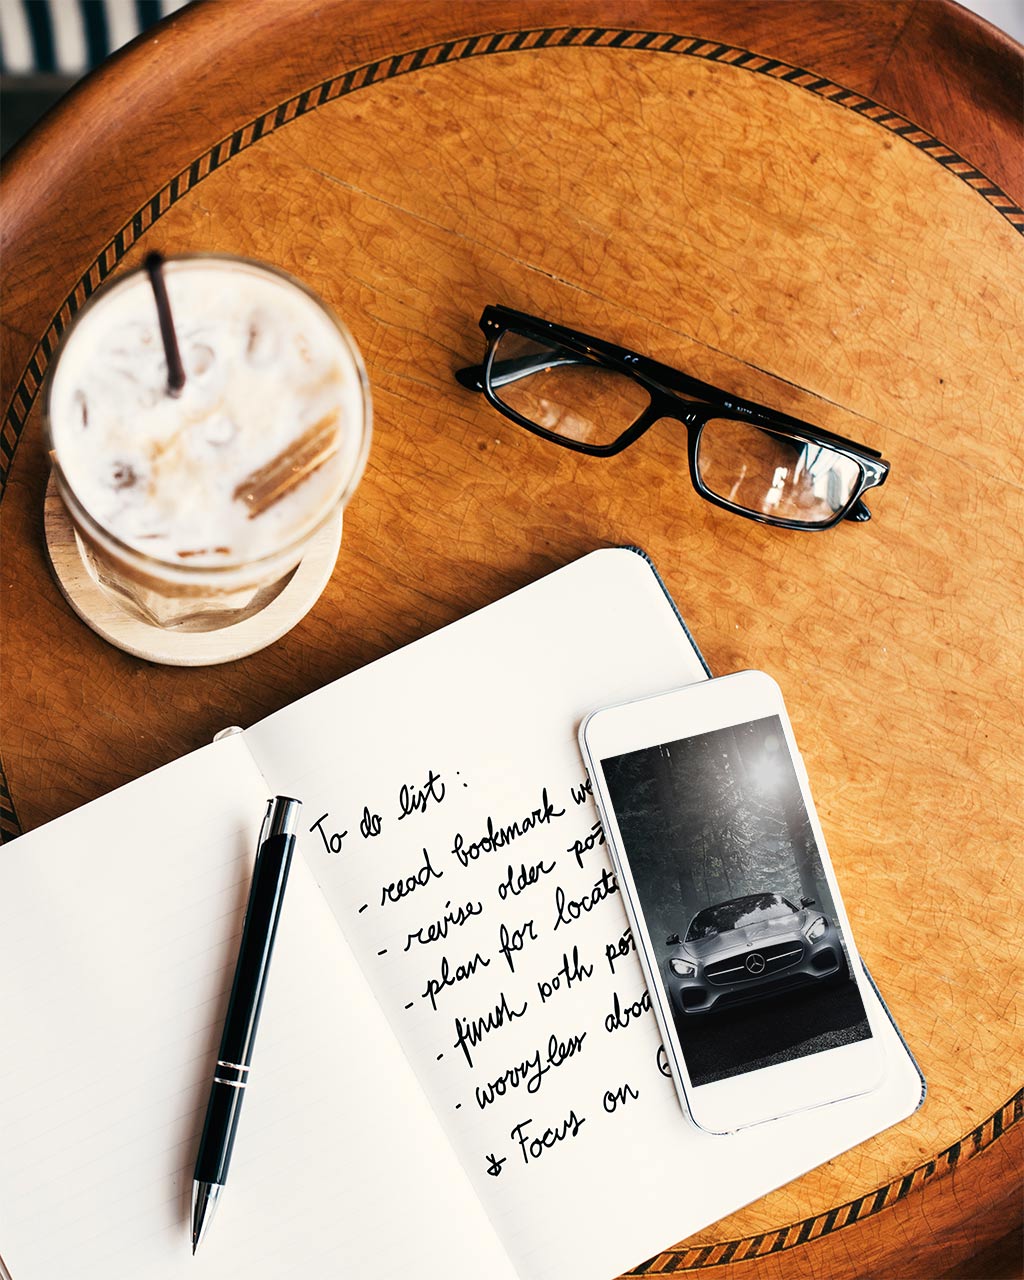 To do list :
- read bookmark we
- revise older po
- plan for locat
- finish both po
- worry less abou
Focus on